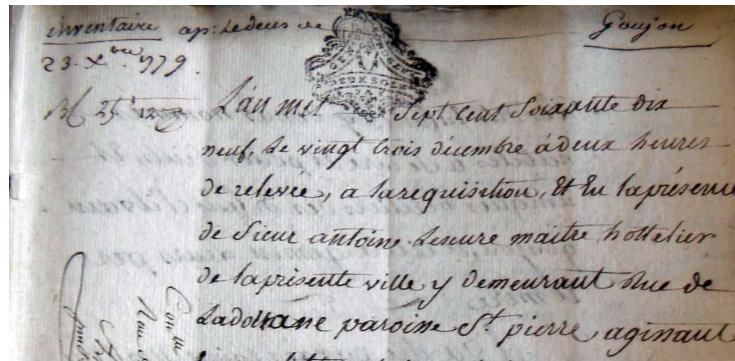 inventaire ap: le deces de Goujon
23. Xbre. 1779.
L'an mil sept cent soixante dix
neuf, le vingt trois décembre à deux heures
de relevée, a la requisition, Et En la présence
de Sieur antoine Lesure maitre hottelier
de la présente ville y demeurant Rue de
La doüane paroisse St. pierre, agissant
DEUX SOLS